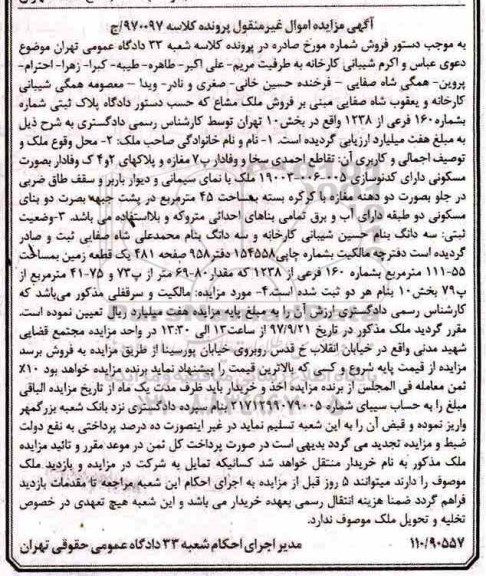 آگهی مزایده اموال غیرمنقول پرونده کلاسه ۹۷۰۰۹۷/ج
به موجب دستور فروش شماره مورخ صادره در پرونده کلاسه شعبه ۳۳ دادگاه عمومی تهران موضوع
دعوی عباس و اکرم شیبانی کارخانه به طرفیت مریم- علی اکبر- طاهره- طیبه- کبرا- زهرا- احترام-
پروین- همگی شاه صفایی – فرخنده حسین خانی- صغری و نادر- ویدا – معصومه همگی شیبانی
کارخانه و یعقوب شاه صفایی مبنی بر فروش ملک مشاع که حسب دستور دادگاه پلاک ثبتی شماره
بشماره ۱۶۰ فرعی از ۱۲۳۸ واقع در بخش۱۰ تهران توسط کارشناس رسمی دادگستری به شرح ذیل
به مبلغ هفت میلیارد ارزیابی گردیده است. ۱- نام و نام خانوادگی صاحب ملک: ۲- محل وقوع ملک و
توصیف اجمالی و کاربری آن: تقاطع احمدی سخا و وفادار پ۷ مغازه و پلاکهای ۲و۴ ک وفادار بصورت
مسکونی دارای کدنوسازی ۰۰۵-۰۰۶-۱۹۰۰۳ ملک با نمای سیمانی و دیوار باربر و سقف طاق ضربی
در جلو بصورت دو دهنه مغازه با کرکره بسته بمساحت ۴۵ مترمربع در پشت جبهه بصرت دو بنای
مسکونی دو طبقه دارای آب و برق تمامی بناهای احداثی متروکه و بلااستفاده می باشد. ۳-وضعیت
ثبتی: سه دانگ بنام حسین شیبانی کارخانه و سه دانگ بنام محمدعلی شاه صفایی ثبت و صادر
گردیده است دفترچه مالکیت بشماره چاپی۱۵۴۵۵۸ دفتر۹۵۸ صفحه ۴۸۱ یک قطعه زمین بمساحت
۱۱۱-۵۵ مترمربع بشماره ۱۶۰ فرعی از ۱۲۳۸ که مقدار۸۰-۶۹ متر از پ۷۳ و ۷۵-۴۱ مترمربع از
پ۷۹ بخش۱۰ بنام هر دو ثبت شده است.۴- مورد مزایده: مالکیت و سرقفلی مذکور می‌باشد که
کارشناس رسمی دادگستری ارزش آن را به مبلغ پایه مزایده هفت میلیارد ریال تعیین نموده است.
مقرر گردید ملک مذکور در تاریخ ۹۷/۹/۲۱ از ساعت۱۳ الی ۱۳:۳۰ در واحد مزایده مجتمع قضایی
شهید مدنی واقع در خیابان انقلاب خ قدس روبروی خیابان پورسینا از طریق مزایده به فروش برسد
مزایده از قیمت پایه شروع و کسی که بالاترین قیمت را پیشنهاد نماید برنده مزایده خواهد بود ۱۰٪
ثمن معامله فی المجلس از برنده مزایده اخذ و خریدار باید ظرف مدت یک ماه از تاریخ مزایده الباقی
مبلغ را به حساب سیبای شماره ۲۱۷۱۲۹۰۷۰۰۵ بنام سپرده دادگستری نزد بانک شعبه بزرگمهر
واریز نموده و قبض آن را به این شعبه تسلیم نماید در غیر اینصورت ده درصد پرداختی به نفع دولت
ضبط و مزایده تجدید می گردد بدیهی است در صورت پرداخت کل ثمن در موعد مقرر و تائید مزایده
ملک مذکور به نام خریدار منتقل خواهد شد کسانیکه تمایل به شرکت در مزایده و بازدید ملک
موصوف را دارند میتوانند ۵ روز قبل از مزایده به اجرای احکام این شعبه مراجعه تا مقدمات بازدید
فراهم گردد ضمنا هزینه انتقال رسمی بعهده خریدار می باشد و این شعبه هیچ تعهدی در خصوص
تخلیه و تحویل ملک موصوف ندارد.
۱۱۰/۹۰۵۵۷ مدیر اجرای احکام شعبه ۳۳ دادگاه عمومی حقوقی تهران